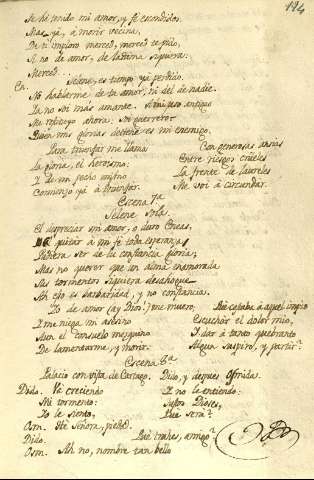 114
Se há tenido mi amor, y fe escondidos.
Mas ya, a morir vecina,
De ti imploro merced, merced te pido,
Si no de amor, de lastima siquiera.
Merced...
En. Selene, es tiempo ya perdido.
No hablarme de tu amor, ni del de nadie.
Ya no soi mas amante. A mi antiguo
Me refuerzo ahora. Soi guerrero:
Quien mis glorias detiene es mi enemigo.
Para triunfar me llama
La gloria, el heroismo:
I de mi pecho mismo
Comienzo ya à triunfar.
Con generosas ansias
Entre riesgos crueles
La frente de laureles
Me voi à circundar.
Escena 7ª
Selene sola.
El despreciar mi amor, o duro Eneas,
quitar à mi fe toda esperanza,
Pudiera ser de tu constancia gloria;
Mas no querer que un alma enamorada
Sus tormentos siquiera desahogue
Ah esto es barbaridad, y no constancia.
Yo de amor (ay Dios!) me muero,
I me niega mi
Aun el consuelo mezquino
De lamentarme, y morir.
Que costaba à aquel impio
Escuchar el dolor mio,
I dar à tanto quebranto
Algun suspiro, y partir?
Escena 8ª
Palacio con vista de Cartago. Dido, y despues Osmida.
Dido. Va creciendo
Mi tormento:
Yo le siento,
I no le entiendo:
Justos Dioses,
Que será?
Osm. Ha Señora, piedad.
Dido. Que trahes, amigo?
Osm. Ah no, nombre tan bello